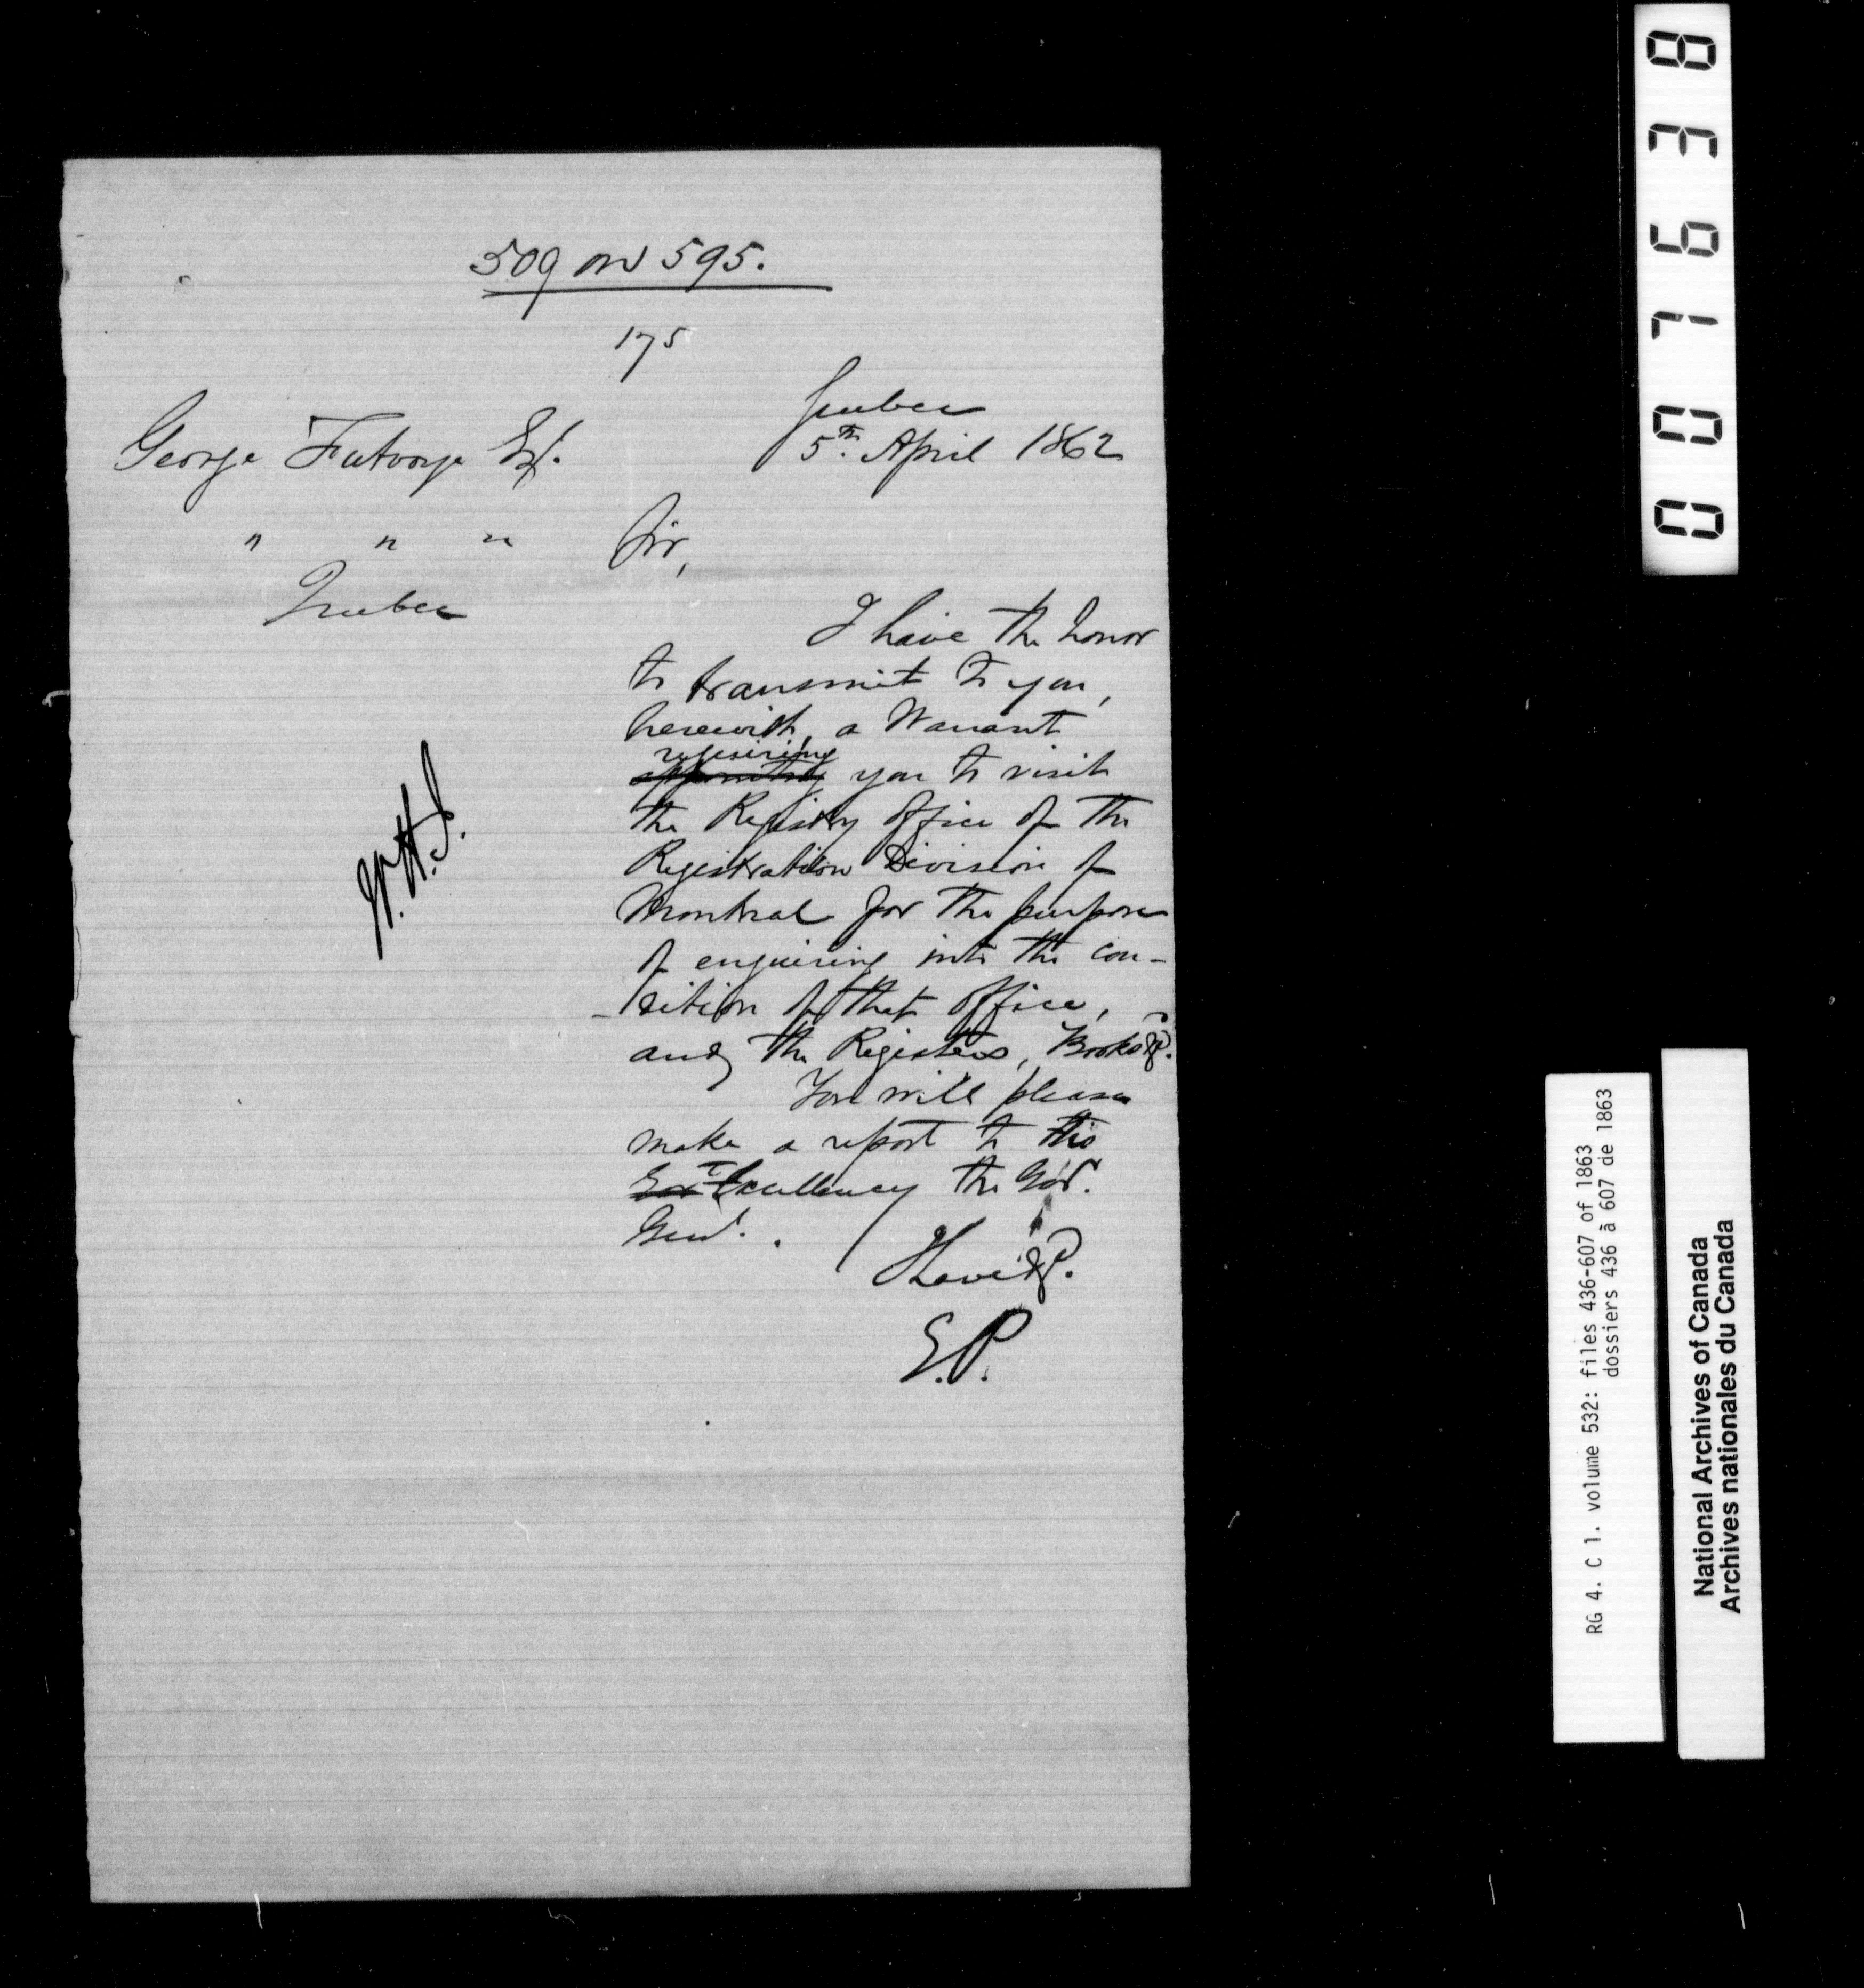 509 on 595.
175
Quebec
5th. April 1862
George Futvoye Esq.
" " "
Quebec
Sir,
I have the honor
to transmit to you,
herewith, a Warrant
requiring
appointing you to visit
the Registry Office of the
Registration Division of
Montreal for the purpose
of enquiring into the con-
-dition of that Office,
and the Registers, Books &c.
You will please
make a report to His
Excellency the Gov.
Genl.
I have &c.
E.P.
W.H.J.
007638
RG 4. C 1. volume 532: files 436-607 of 1863
dossiers 436 à 607 de 1863
National Archives of Canada
Archives nationales du Canada